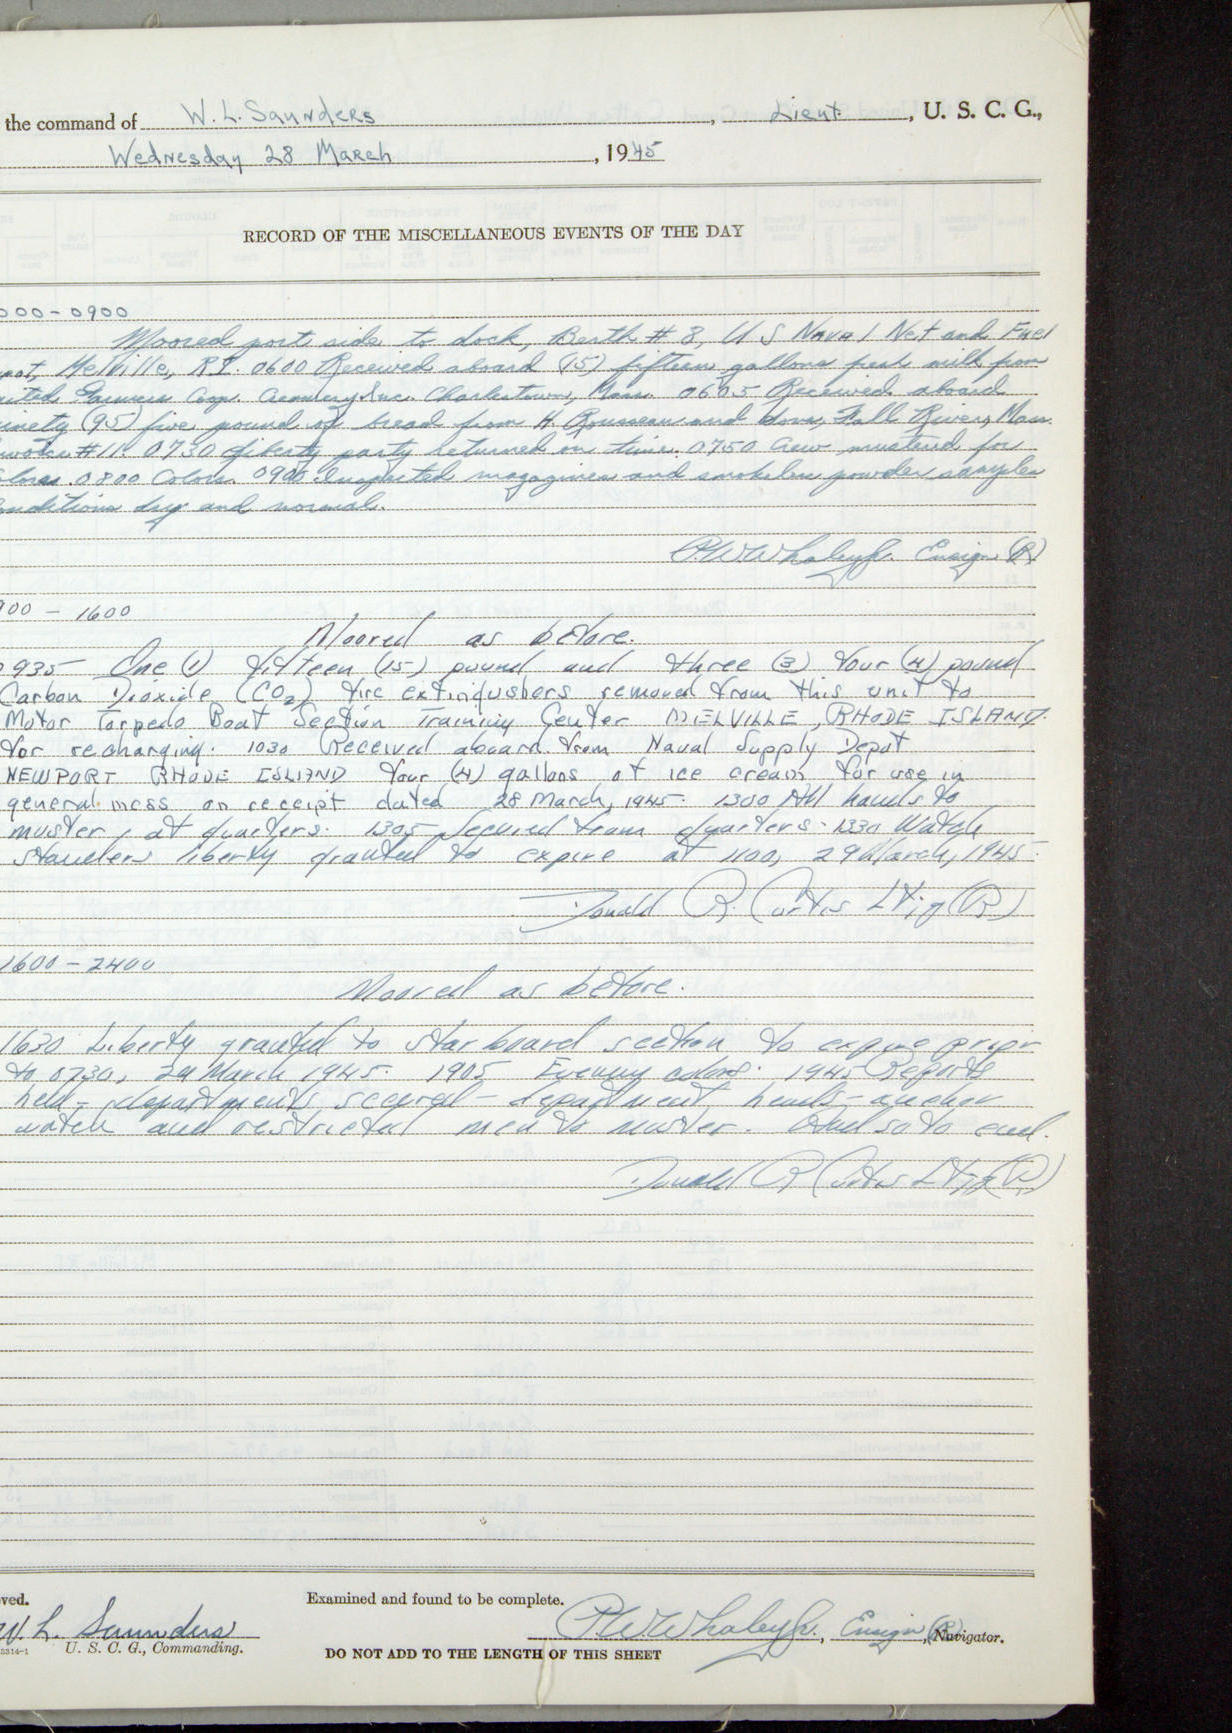 the command of W. L. Saunders, Lieut., U. S. C. G.,
Wednesday 28 March, 1945
RECORD OF THE MISCELLANEOUS EVENTS OF THE DAY
000-0900
Moored port side to dock, Berth # 8, U S Naval Net and Fuel
Melville, R.I. 0600 Received aboard (15) fifteen gallons fresh milk from
Farmers Coop. Creamery Inc. Charlestown, Mass. 0605 Received aboard
ninety (95) five pound of bread from H. Rousseau and Sons, Fall River, Mass.
#111 0730 Liberty party returned on time. 0750 Crew mustered for
0800 Colors. 0900 Inspected magazines and smokeless powder samples
conditions dry and normal.
P.W. Whaley Jr. Ensign (R)
900 - 1600
Moored as before.
0935 One (1) fifteen (15) pound and three (3) four (4) pound
Carbon Dioxide (CO2) fire extinquishers removed from this unit to
Motor Torpedo Boat Section Training Center MELVILLE, RHODE ISLAND.
for recharging. 1030 Received aboard from Naval Supply Depot
NEWPORT RHODE ISLAND four (4) gallons of ice cream for use in
general mess on receipt dated 28 March, 1945. 1300 All hands to
muster, at quarters. 1305 Secured from quarters. 1330 Watch
standers liberty granted to expire at 1100, 29 March, 1945.
Donald R. Curtis Ltjg (R)
1600-2400
Moored as before.
1630 Liberty granted to starboard section to expire prior
to 0730, 29 March 1945. 1905 Evening colors. 1945 Reports
held - departments secured - department heads - anchor
watch and restricted men to muster. And so to end.
Donald R Curtis Ltjg (R)
ved.
Examined and found to be complete.
W. L. Saunders
U. S. C. G., Commanding.
P.W. Whaley Jr., Ensign (R), Navigator.
DO NOT ADD TO THE LENGTH OF THIS SHEET